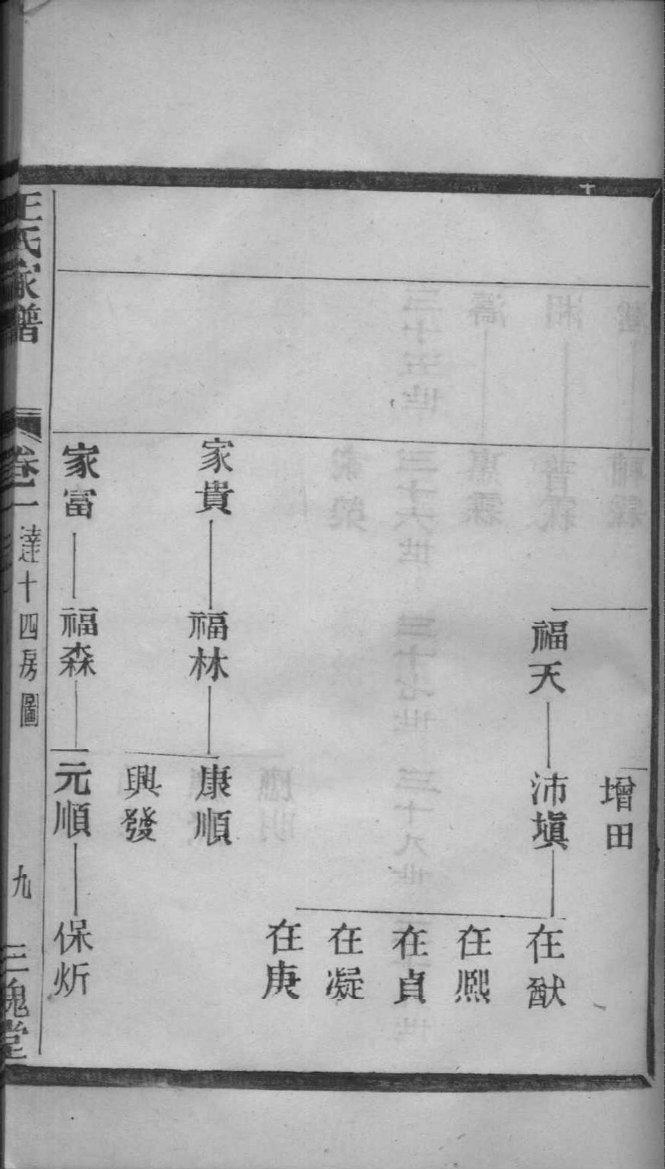 增田
福天
沛塡
在猷
在熈
在貞
在凝
在庚
家貴
福林
康順
興發
家富
福森
元順
保炘
王氏家譜
卷一
達十四房圖
九
三槐堂